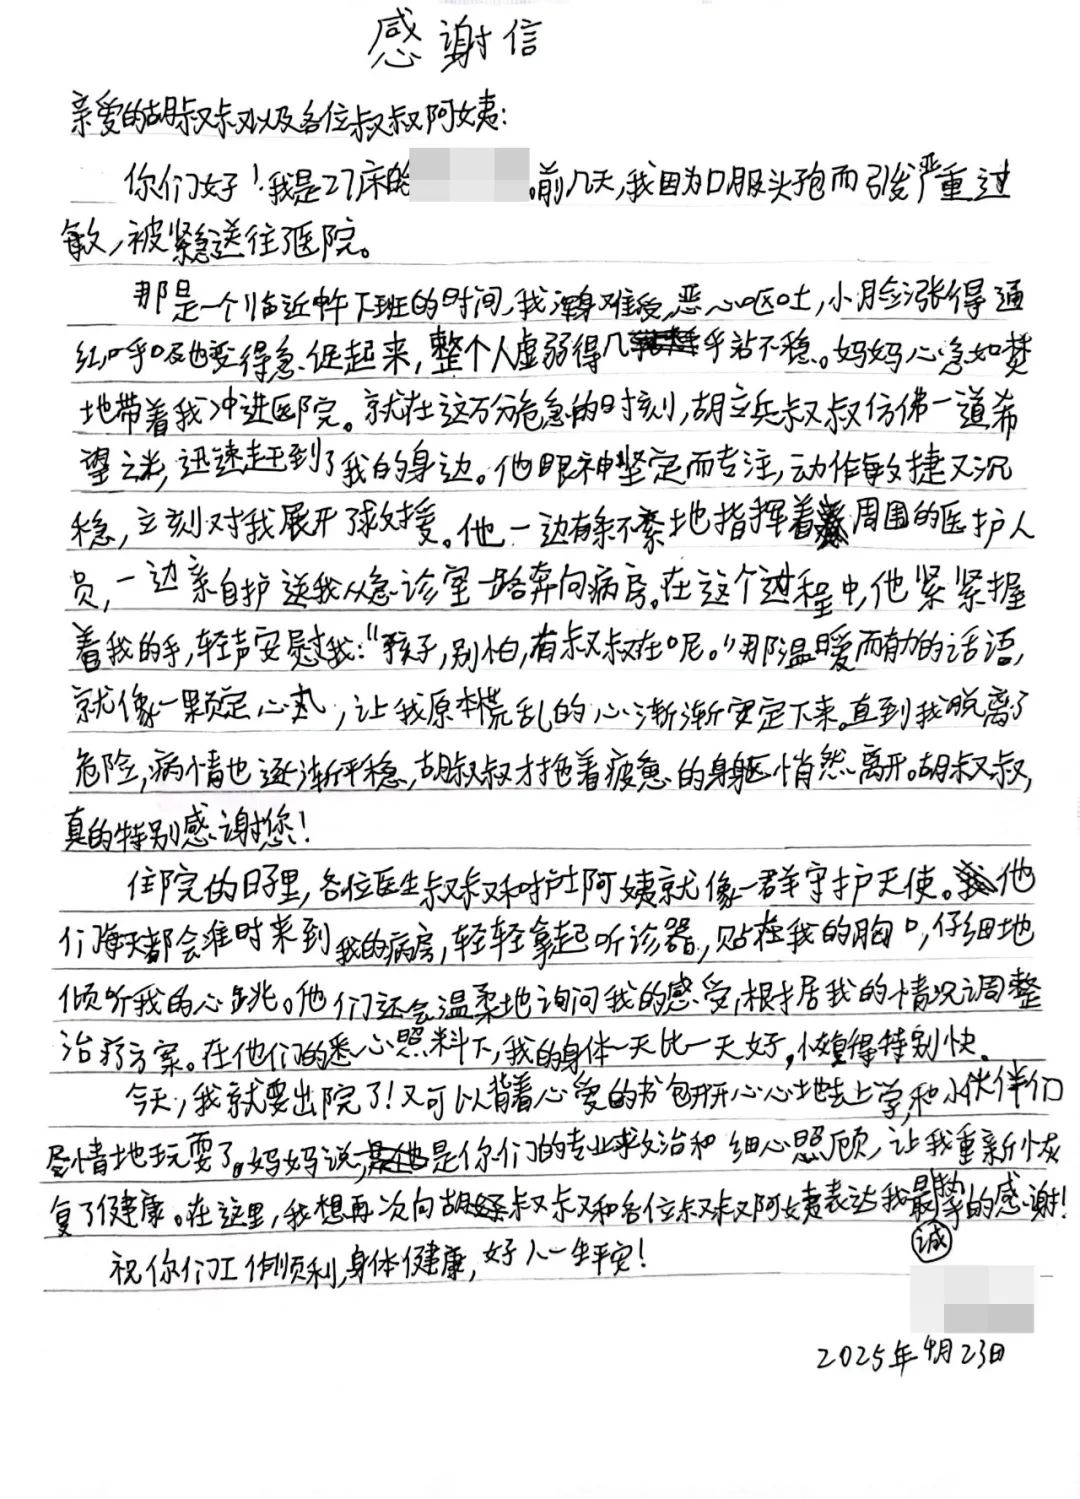 感谢信
亲爱的胡叔叔以及各位叔叔阿姨：
你们好！我是27床的 。前几天，我因为口服头孢而引发严重过
敏，被紧急送往了医院。
那是一个临近中午下班的时间，我浑身难受，恶心呕吐，小脸涨得通
红，呼吸也变得急促起来，整个人虚弱得几乎站不稳。妈妈心急如焚
地带着我冲进医院。就在这万分危急的时刻，胡立兵叔叔仿佛一道希
望之光，迅速赶到了我的身边。他眼神坚定而专注，动作敏捷又沉
稳，立刻对我展开了救援。他一边有条不紊地指挥着周围的医护人
员，一边亲自护送我从急诊室一路奔向病房。在这个过程中，他紧紧握
着我的手，轻声安慰我：“孩子，别怕，有叔叔在呢。”那温暖而有力的话语，
就像一颗定心丸，让我原本慌乱的心渐渐安定下来。直到我脱离了
危险，病情也逐渐平稳，胡叔叔才拖着疲惫的身躯悄然离开。胡叔叔，
真的特别感谢您！
住院的日子里，各位医生叔叔和护士阿姨就像一群守护天使。他
们每天都会准时来到我的病房，轻轻拿起听诊器，贴在我的胸口，仔细地
倾听我的心跳。他们还会温柔地询问我的感受，根据我的情况调整
治疗方案。在他们的悉心照料下，我的身体一天比一天好，恢复得特别快。
今天，我就要出院了！又可以背着心爱的书包开开心心地去上学，和小伙伴们
尽情地玩耍了。妈妈说，是你们的专业救治和细心照顾，让我重新恢
复了健康。在这里，我想再次向胡叔叔和各位叔叔阿姨表达我最诚挚的感谢！
祝你们工作顺利，身体健康，好人一生平安！
2025年4月23日